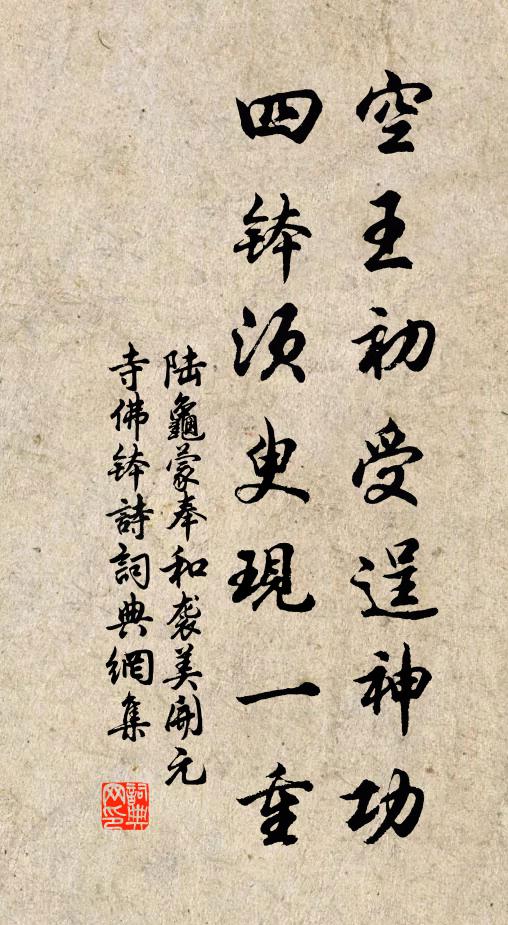 空王初受逞神功
四鉢须臾現一重
陆龜蒙奉和袭美開元
寺佛鉢詩詞典網集
詞典网印